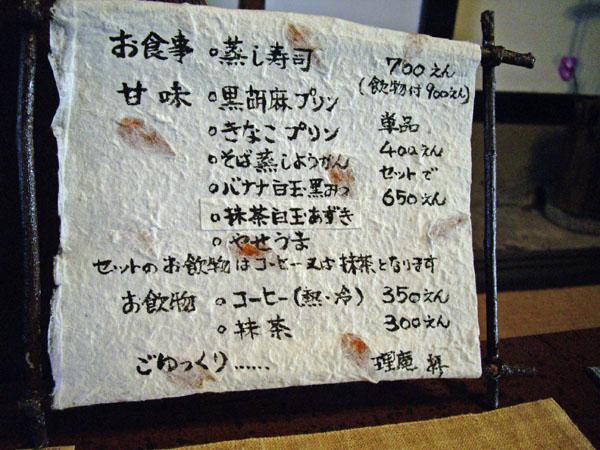 お食事 ○蒸し寿司 700えん
(飲物付900えん)
甘味 ○黒胡麻プリン
○きなこプリン 単品
○そば蒸しようかん 400えん
○バナナ白玉・黒みつ セットで
○抹茶白玉・あずき 650えん
○やせうま
セットのお飲物はコーヒー又は抹茶となります
お飲物 ○コーヒー(熱・冷) 350えん
○抹茶 300えん
ごゆっくり…… 理庵